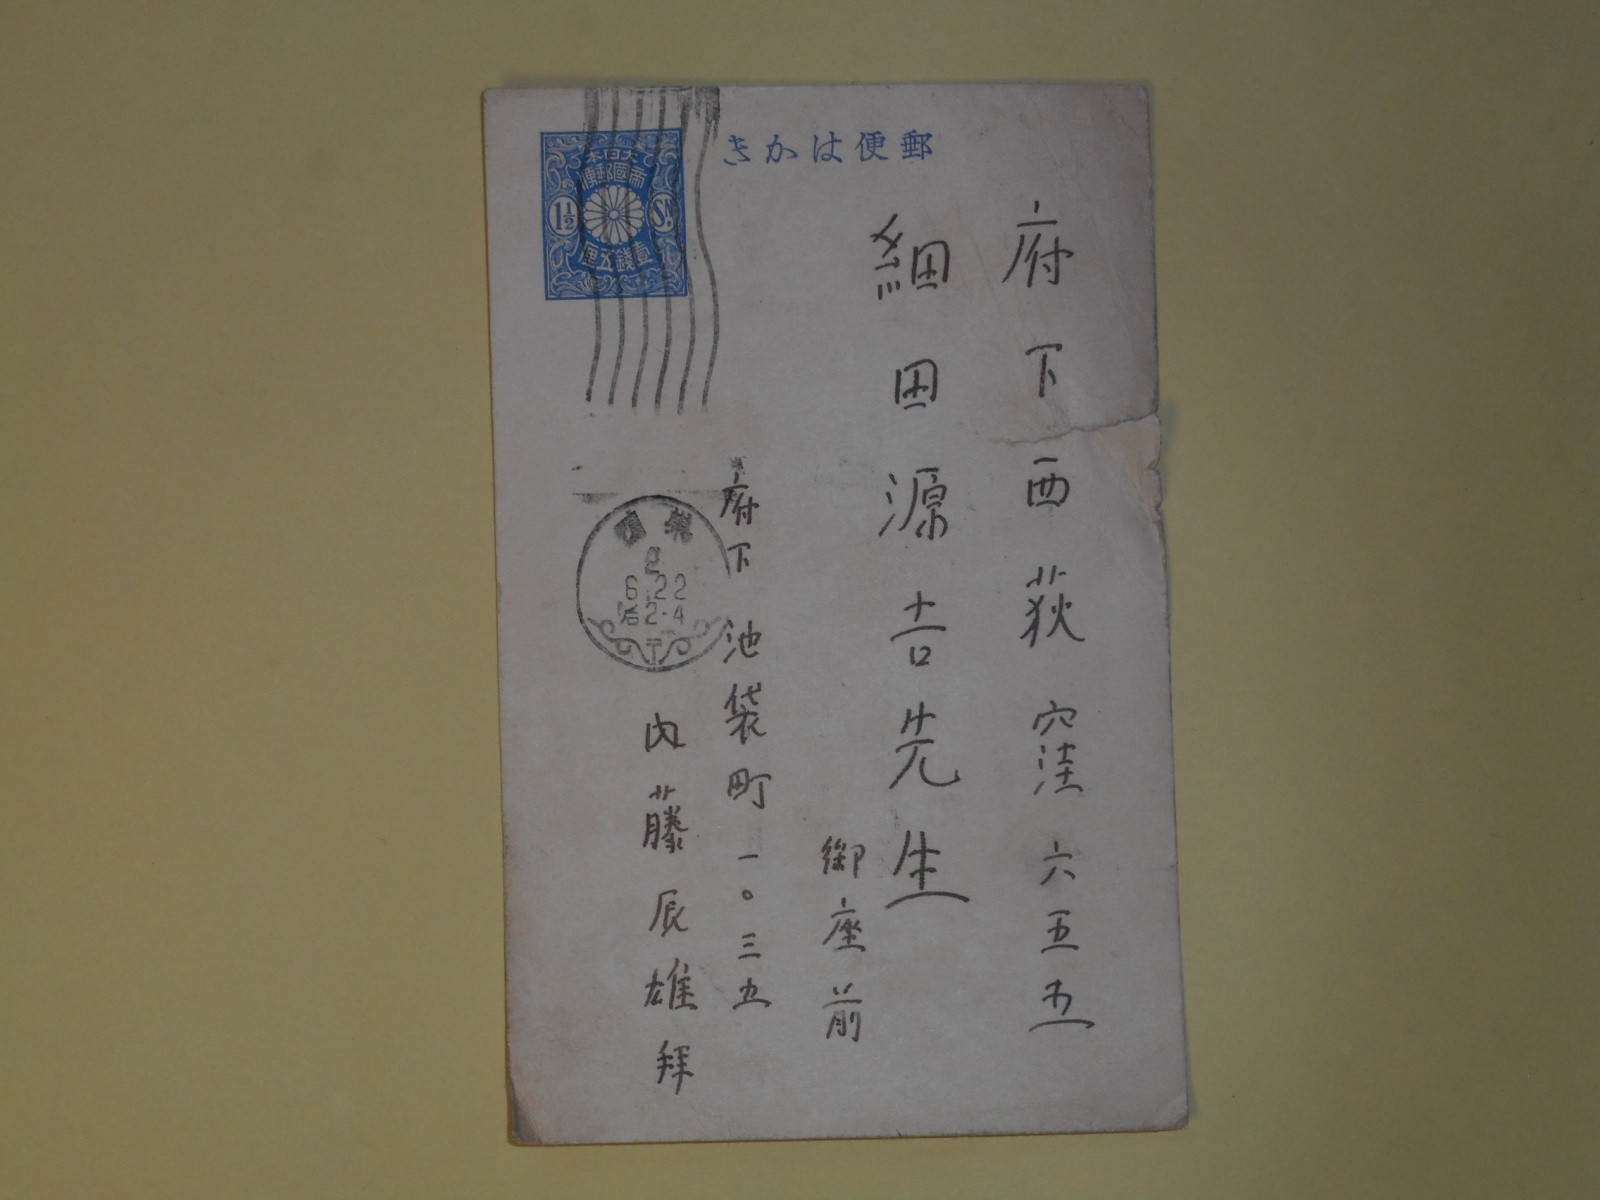 郵便はかき
大日本
帝國郵便
1½
Sn
壹錢五厘
府下西荻窪六五五
細田源吉先生
御座前
6.22
后2-4
府下池袋町一〇三五
内藤辰雄拜